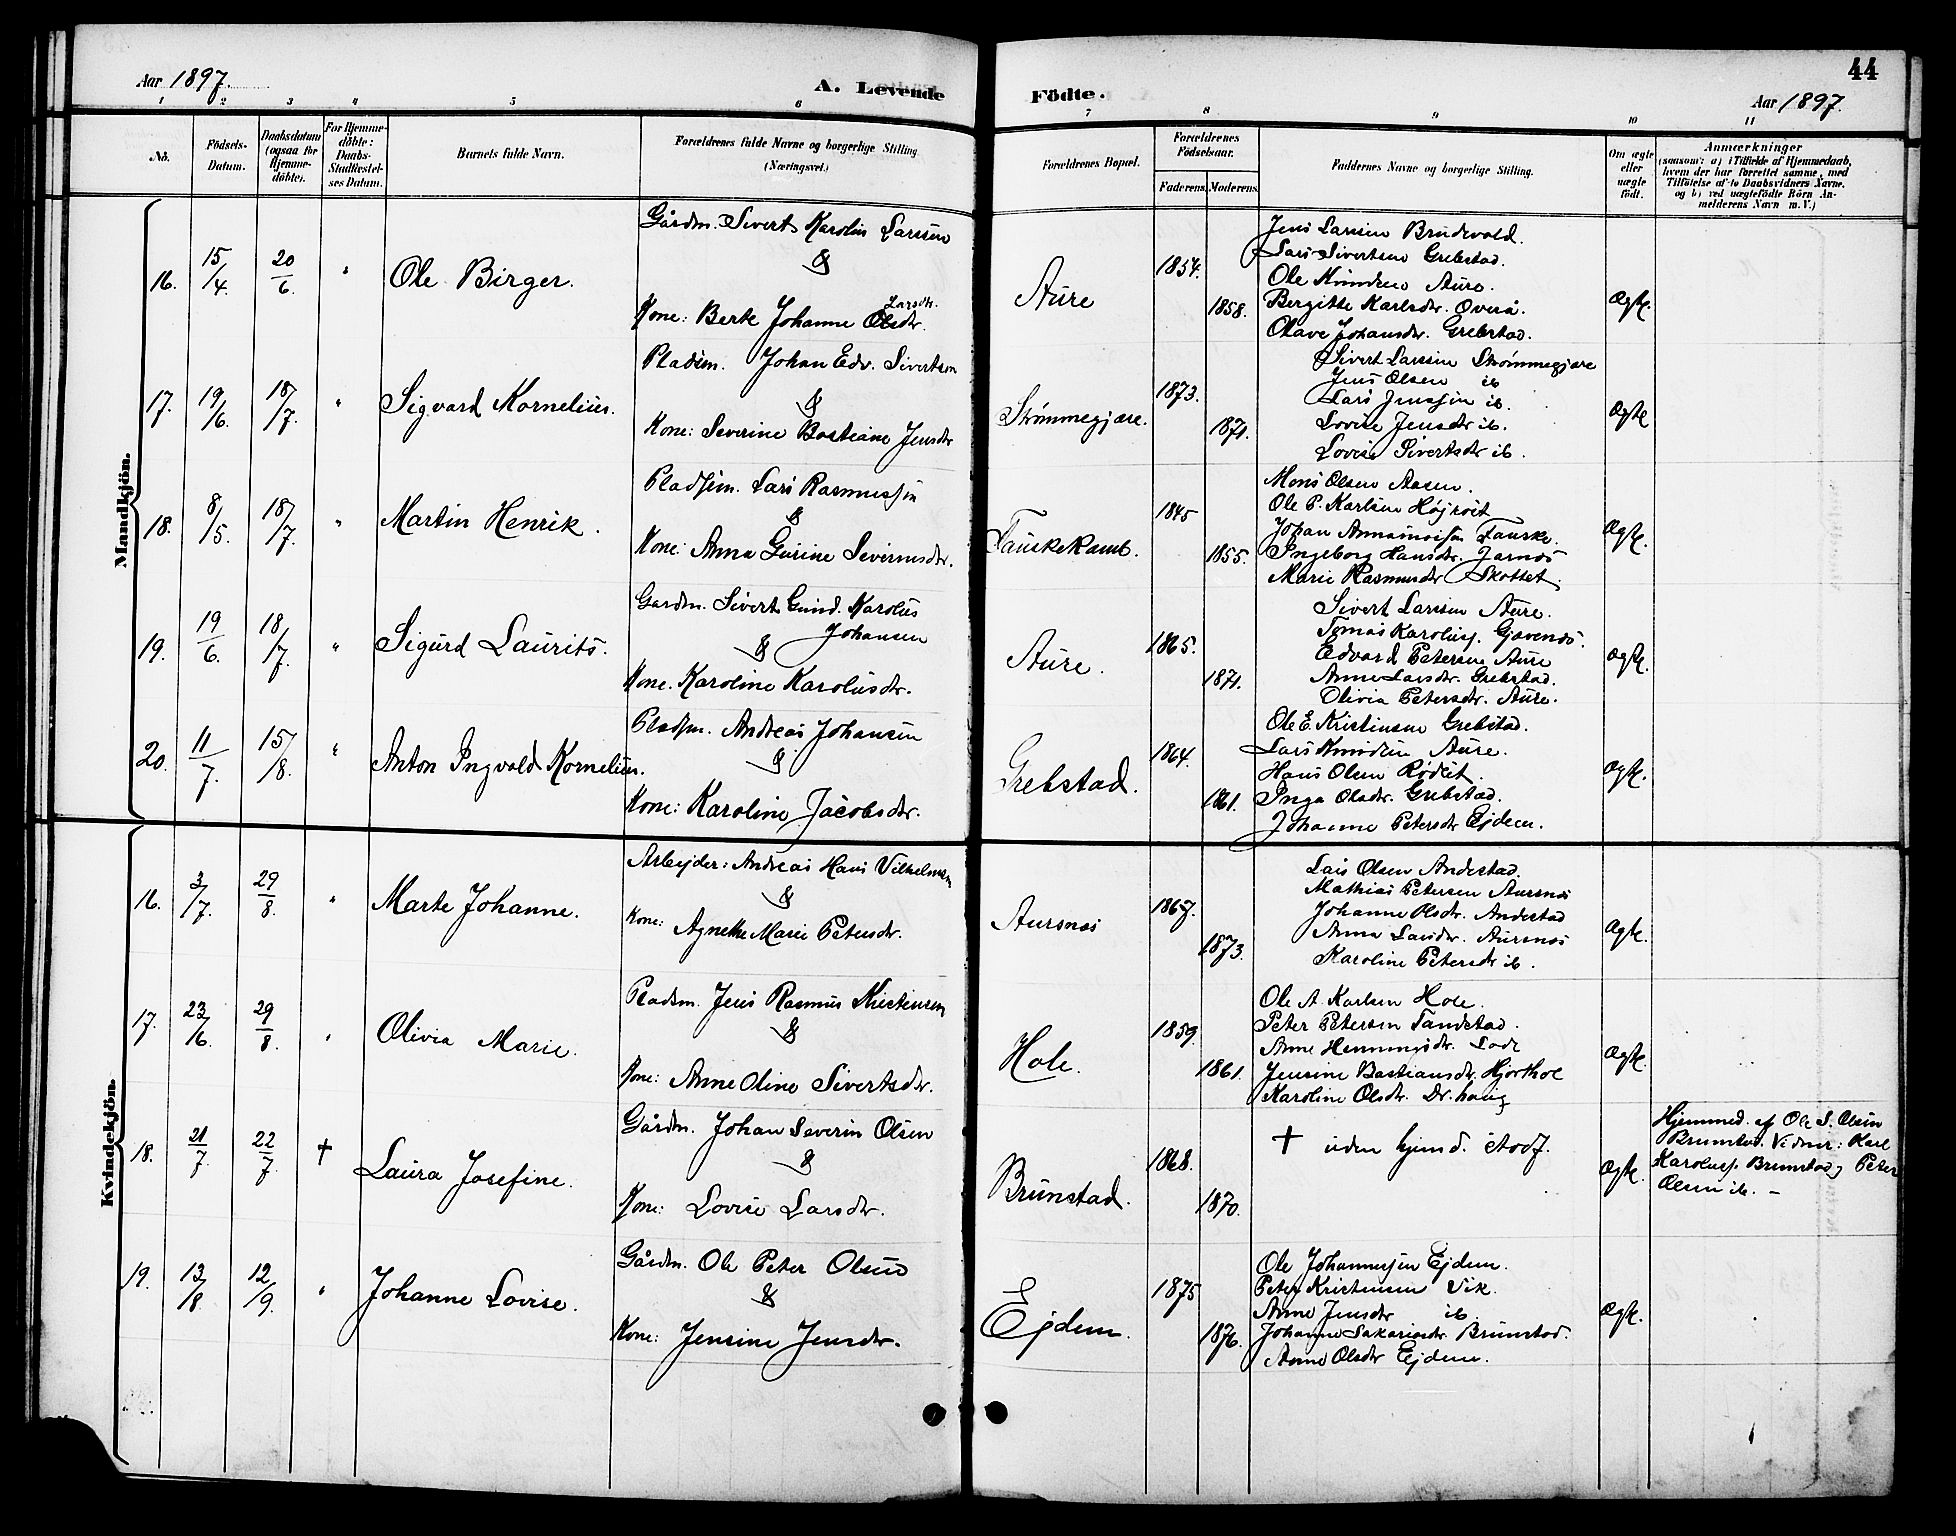 Aar 1897.
A. Levende
Födte.
44
Aar 1897.
1 2 3 4 5 6 7 8 9 10 11
No.
Födsels-Datum.
Daabsdatum (ogsaa for Hjemme-döbte).
For Hjemme-döbte: Daabs-Stadfæstel-ses Datum.
Barnets fulde Navn.
Forældrenes fulde Navne og borgerlige Stilling
(Næringsvei.)
Forældrenes Bopæl.
Forældrenes Födselsaar.
Faderens. Moderens.
Faddernes Navne og borgerlige Stilling.
Om ægte eller uægte født.
Anmærkninger
(saasom: a) i Tilfælde af Hjemmedaab,
hvem der har forrettet samme, med
Tilföielse af to Daabsvidners Navne,
og b) ved uægtefödte Börn An-
melderens Navn m. V.)
Mandkjön.
16. 15/4 20/6 " Ole Birger.
Gårdm. Sivert Karolin Larssen
&
Kone: Berte Johanne Olsdtr. Larsdtr.
Aure 1854. 1858.
Jens Larssen Brudevold.
Lars Sivertsen Grebstad.
Ole Knudsen Aure.
Bergitte Karlsdtr. Overå.
Olave Johansdtr. Grebstad.
Ægte.
17. 19/6. 18/7. " Sigvard Kornelius.
Pladsm. Johan Edv. Sivertsen
&
Kone: Severine Bastiane Jensdtr
Strømmegjære. 1873. 1871.
Sivert Larssen Strømmegjære
Jens Olsen ib
Lars Jenssen ib.
Lovise Jensdtr ib.
Lovise Sivertsdtr ib.
Ægte
18. 8/5. 18/7. " Martin Henrik.
Pladsem. Lars Rasmussen
&
Kone: Anna Gurine Severinsdtr.
Fauskekamb. 1845 1855.
Mons Olsen Aasen.
Ole P. Karlsen Højseit
Johan Fauske.
Ingeborg Hansdtr. Jarnæs
Marie Rasmusdtr Skottet.
Ægte.
19. 19/6. 18/7. " Sigurd Laurits.
Gardm. Sivert Gund. Karolus
Johansen
&
Kone. Karoline Karolusdtr.
Aure. 1865. 1871.
Sivert Larssen Aure.
Tomas Karolusf. Gjævenæs.
Edvard Petersen Aure
Anne Larsdtr. Grebstad.
Olivia Petersdtr. Aure.
Ægte.
20. 11/7. 15/8. " Anton Ingvald Kornelius.
Pladsm. Andreas Johansen
&
Kone: Karoline Jacobsdtr.
Grebstad. 1864. 1861.
Ole E. Kristensen Grebstad.
Lars Knudsen Aure.
Hans Olsen Rødset.
Inga Olsdtr. Grebstad.
Johanne Petersdtr Ejdem.
Ægte.
Kvindekjön.
16. 3/7. 29/8. " Marte Johanne.
Arbejder: Andreas Hans Vilhelmsen
&
Kone: Agnethe Marie Petersdtr.
Aursnæs 1867. 1873.
Lars Olsen Andestad.
Mathias Petersen Aursnæs
Johanne Olsdtr. Andestad
Anna Larsdtr. Aursnæs
Karoline Petersdtr ib.
Ægte.
17. 23/6. 29/8. " Olivia Marie.
Pladsm. Jens Rasmus Kristensen
&
Kone: Anne Oline Sivertsdtr.
Hole. 1859. 1861.
Ole A. Karlsen Hole.
Peter Petersen Tandstad.
Anne Henningsdtr.
Jensine Bastiansdtr. Hjorthol
Karoline Olsdtr. Dr. haug
Ægte.
18. 21/7. 22/7. † Laura Josefine.
Gårdm. Johan Severin Olsen
&
Kone: Lovise Larsdtr.
Brunstad. 1868. 1870.
† uden hjemd. stadf.
Ægte.
Hjemmed. af Ole S. Olsen
Brunstad. Vidner: Karl
Karolusf. Brunstad, Peter
Olsen ib. –
19. 13/8. 12/9. " Johanne Lovise.
Gårdm. Ole Peter Olsen
&
Kone: Jensine Jensdtr.
Ejdem. 1875 1876.
Ole Johannesen Ejdem.
Peter Kristensen Vik.
Anne Jensdtr ib
Johanne Sakariasdtr. Brunstad.
Anne Olsdtr Ejdem.
Ægte.